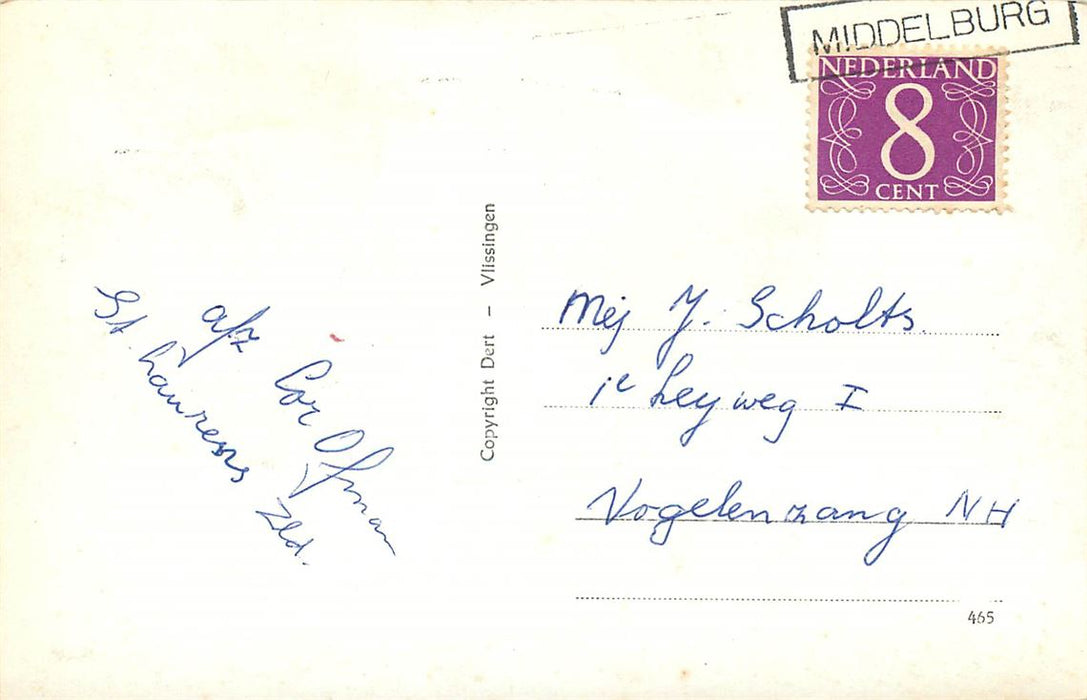 MIDDELBURG
NEDERLAND
8
CENT
afz Cor Ofman
St. Laurens Zld.
Copyright Dert – Vlissingen
Mej J. Scholts.
1e Leyweg I
Vogelenzang NH
465